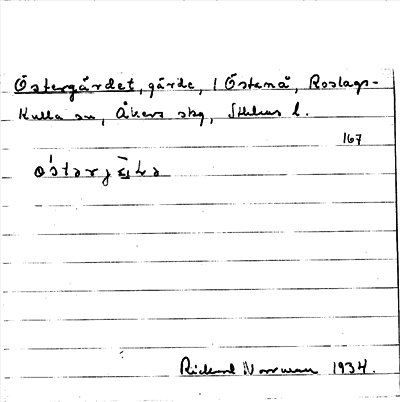 Östergärdet, gärde, i Östanå, Roslags-
Kulla sn, Åkers skg, Sthlms l.
167
Rickard Norrman 1934.